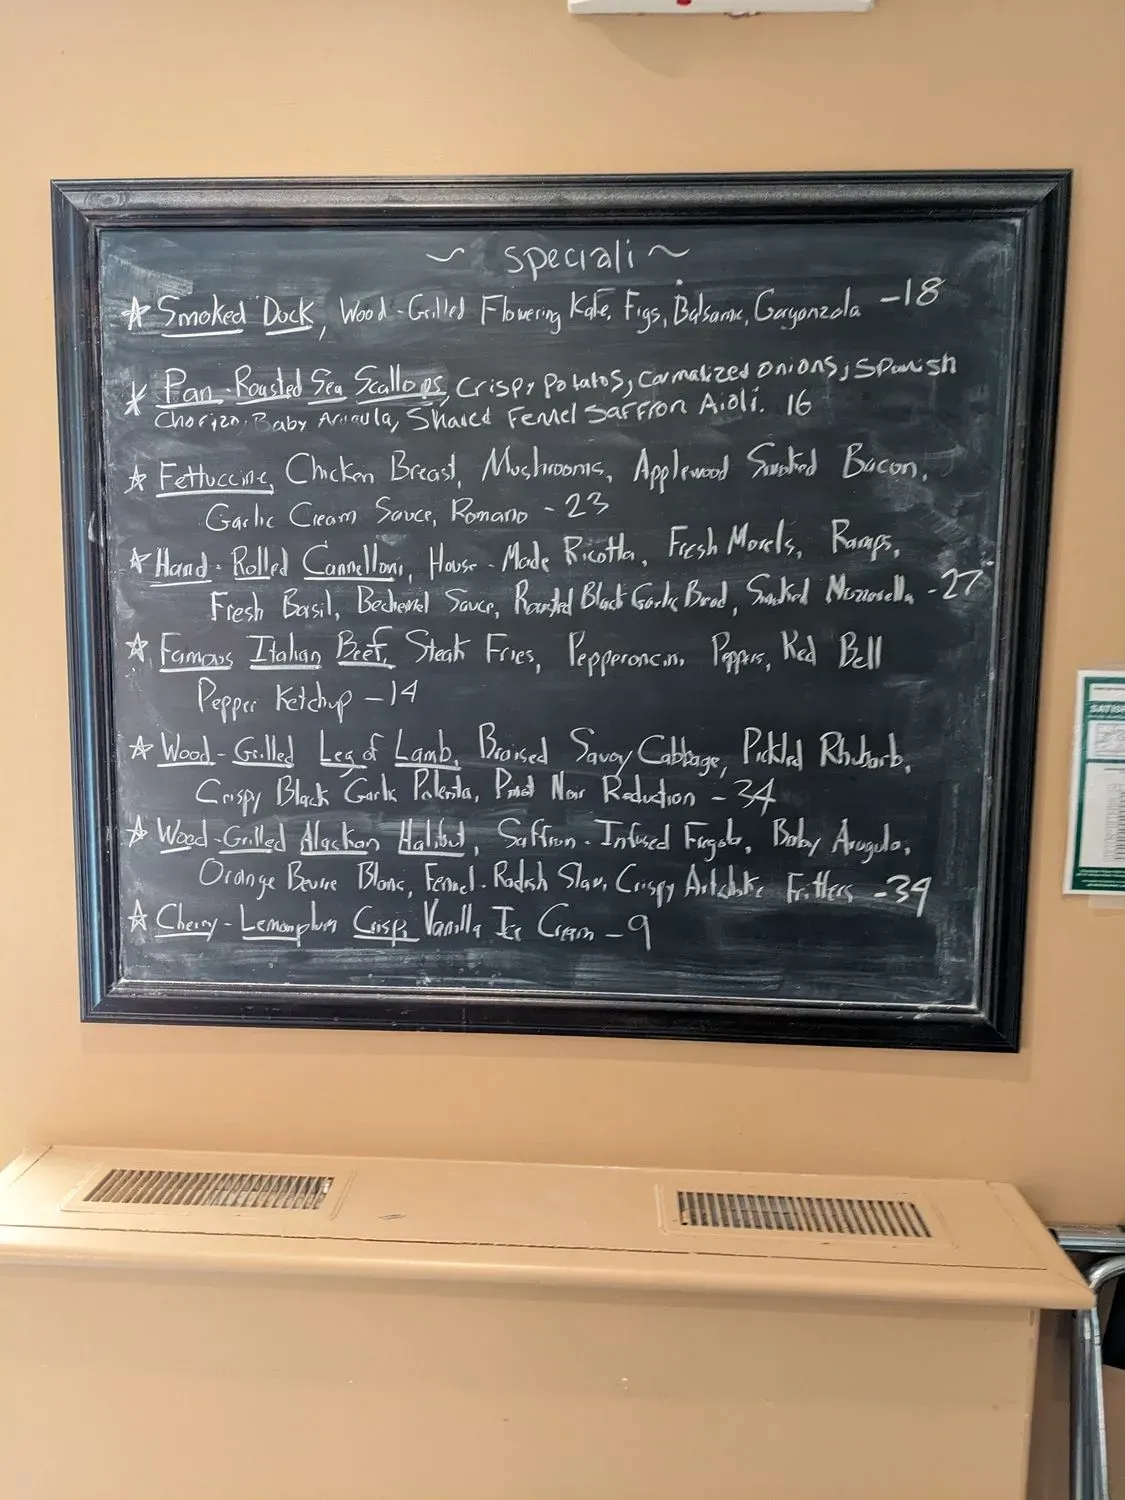 ~ speciali ~
☆ Smoked Duck, Wood-Grilled Flowering Kale, Figs, Balsamic, Gorgonzola -18
☆ Pan-Roasted Sea Scallops, Crispy Potatos, Carmalized onions, Spanish
Chorizo, Baby Arugula, Shaved Fennel Saffron Aioli. 16
☆ Fettuccine, Chicken Breast, Mushrooms, Applewood Smoked Bacon,
Garlic Cream Sauce, Romano - 23
☆ Hand-Rolled Cannelloni, House-Made Ricotta, Fresh Morels, Ramps,
Fresh Basil, Bechemel Sauce, Roasted Black Garlic Bread, Smoked Mozzarella -27
☆ Famous Italian Beef, Steak Fries, Pepperoncini Peppers, Red Bell
Pepper Ketchup -14
☆ Wood-Grilled Leg of Lamb, Braised Savoy Cabbage, Pickled Rhubarb,
Crispy Black Garlic Polenta, Pinot Noir Reduction - 34
☆ Wood-Grilled Alaskan Halibut, Saffron-Infused Fregola, Baby Arugula,
Orange Beurre Blanc, Fennel-Radish Slaw, Crispy Artichoke Fritters -39
☆ Cherry-Lemonplum Crisp, Vanilla Ice Cream -9